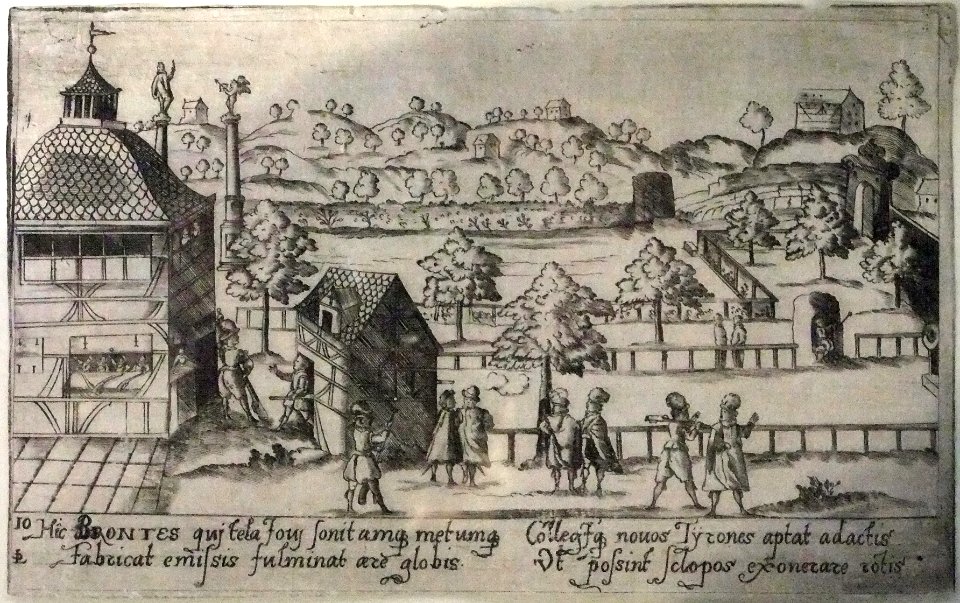 10 Hic BRONTES qui tela Jovi sonitamq metumq
Fabricat emissis fulminat ære globis.
novos Tyrones aptat adactis
Vt possint sclopos exonerare rotis